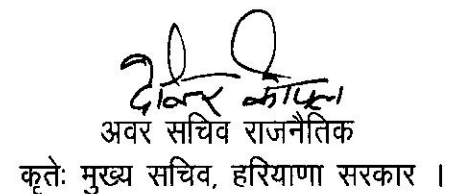 अवर सचिव राजनैतिक
कृतेः मुख्य सचिव, हरियाणा सरकार ।